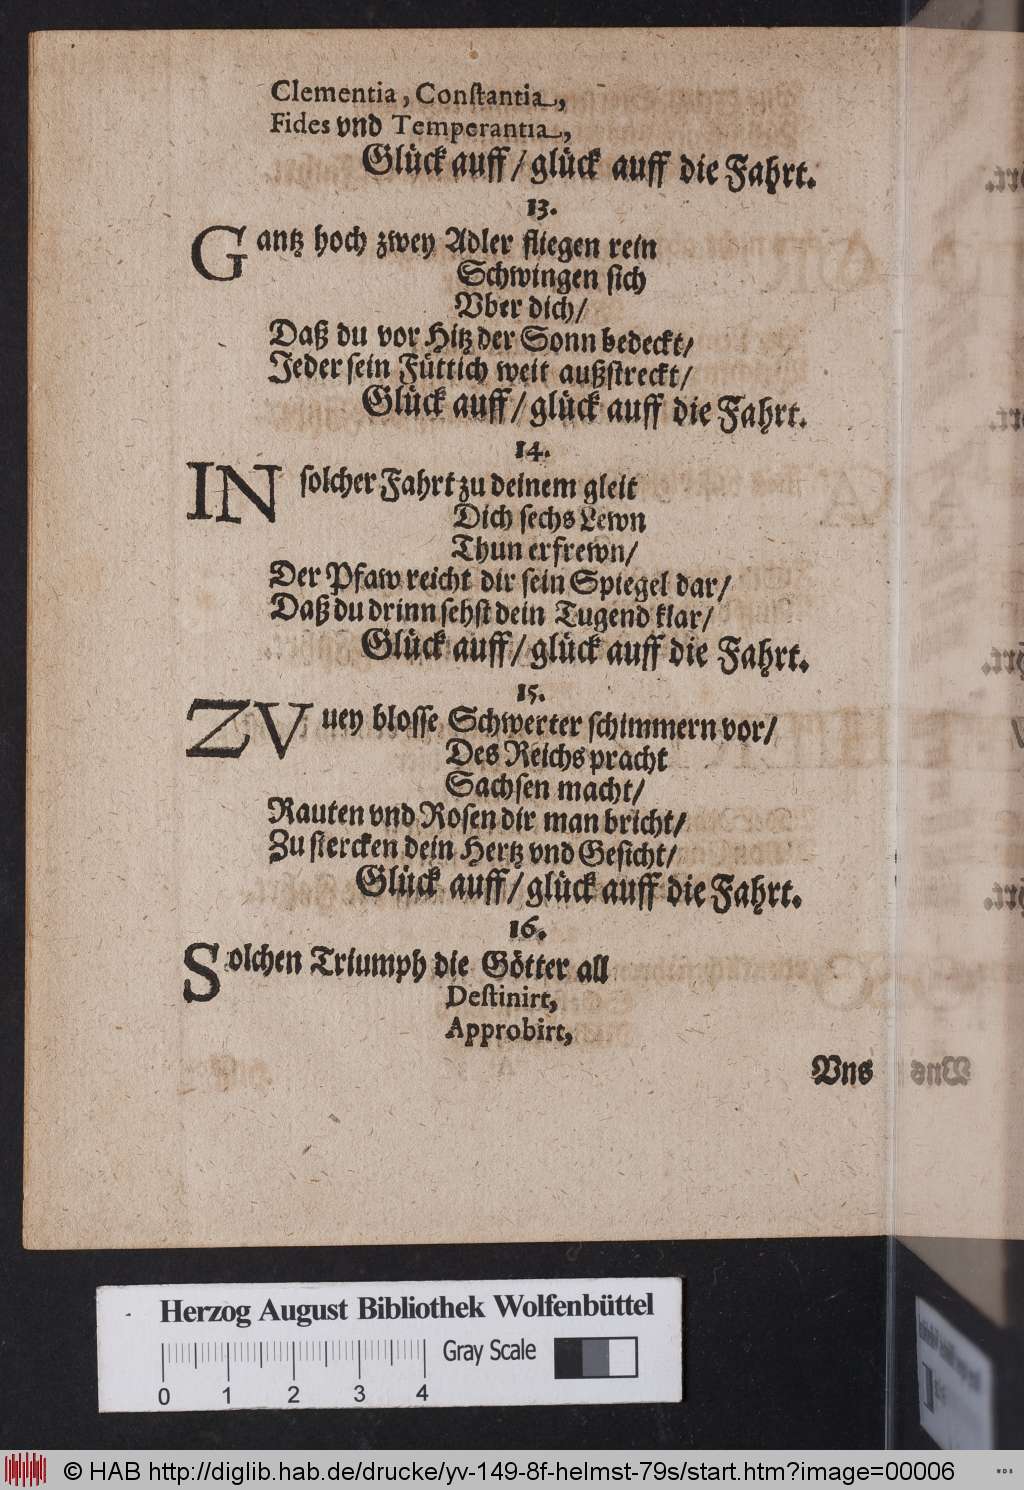 Clementia, Conſtantia,
Fides vnd Temperantia,
Glück auff/ glück auff die Fahrt.
13.
Gantz hoch zwey Adler fliegen rein
Schwingen ſich
Vber dich/
Daß du vor Hitz der Sonn bedeckt/
Jeder ſein Füttich weit außſtreckt/
Glück auff/ glück auff die Fahrt.
14.
IN ſolcher Fahrt zu deinem gleit
Dich ſechs Lewn
Thun erfrewn/
Der Pfaw reicht dir ſein Spiegel dar/
Daß du drinn ſehſt dein Tugend klar/
Glück auff/ glück auff die Fahrt.
15.
ZVuey bloſſe Schwerter ſchimmern vor/
Des Reichs pracht
Sachſen macht/
Rauten vnd Roſen dir man bricht/
Zu ſtercken dein Hertz vnd Geſicht/
Glück auff/ glück auff die Fahrt.
16.
Solchen Triumph die Götter all
Deſtinirt,
Approbirt,
Vns
Herzog August Bibliothek Wolfenbüttel
Gray Scale
0 1 2 3 4
© HAB http://diglib.hab.de/drucke/yv-149-8f-helmst-79s/start.htm?image=00006